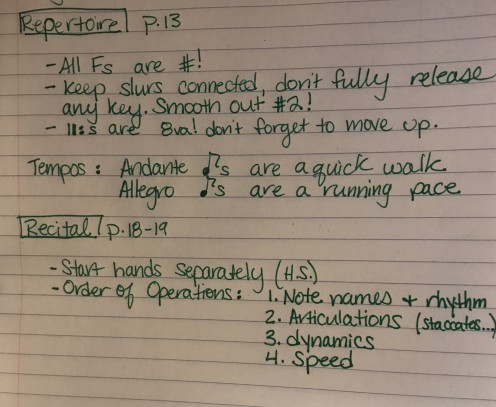 Repertoire p.13
- All Fs are #!
- keep slurs connected, don't fully release
any key. Smooth out #2!
- 11:s are 8va! don't forget to move up.
Tempos: Andante ♪s are a quick walk
Allegro ♪s are a running pace
Recital p.18-19
- Start hands separately (H.S.)
- Order of Operations: 1. Note names + rhythm
2. Articulations (staccatos...)
3. dynamics
4. Speed